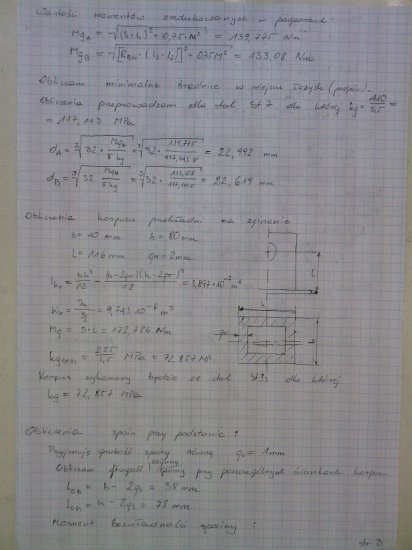 Wartości momentów zredukowanych w podporach
MgA = √((S·L)² + 0,75·M²) = 139,775 Nm
MgB = √([RBW·(L3-L2)]² + 0,75M²) = 133,08 Nm
Obliczam minimalne średnice w miejscu łożyska (podpór).
Obliczenia przeprowadzam dla stali St 7 dla której kg = 410/3,5 =
= 117,143 MPa
dA = ∛(32·MgA/π kg) = ∛(32·139,775/117,143π) = 22,992 mm
dB = ∛(32·MgB/π kg) = ∛(32·133,08/117,143π) = 22,619 mm
Obliczenia korpusu przekładni na zginanie
b = 40 mm h = 80mm
L = 116 mm gr = 2mm
Ix = bh³/12 - (b-2gr)(h-2gr)³/12 = 3,897·10⁻⁷ m⁴
Wx = Ix/(h/2) = 9,743·10⁻⁶ m³
Mg = S·L = 172,786 Nm
= 255/3,5 MPa = 72,857 MPa
Korpus wykonany będzie ze stali St3s dla której
kg = 72,857 MPa
Obliczenia spoin przy podstawie:
Przyjmuję grubość spoiny równą gs = 1mm
Obliczam długość spoiny przy poszczególnych ściankach korpusu
= b - 2gs = 38 mm
= h - 2gs = 78 mm
Moment bezwładności spoiny:
str 3